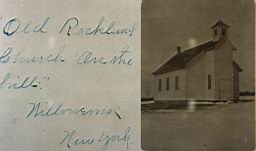 Old Rockland
Church On the
hill"
Willowemoc
New York.